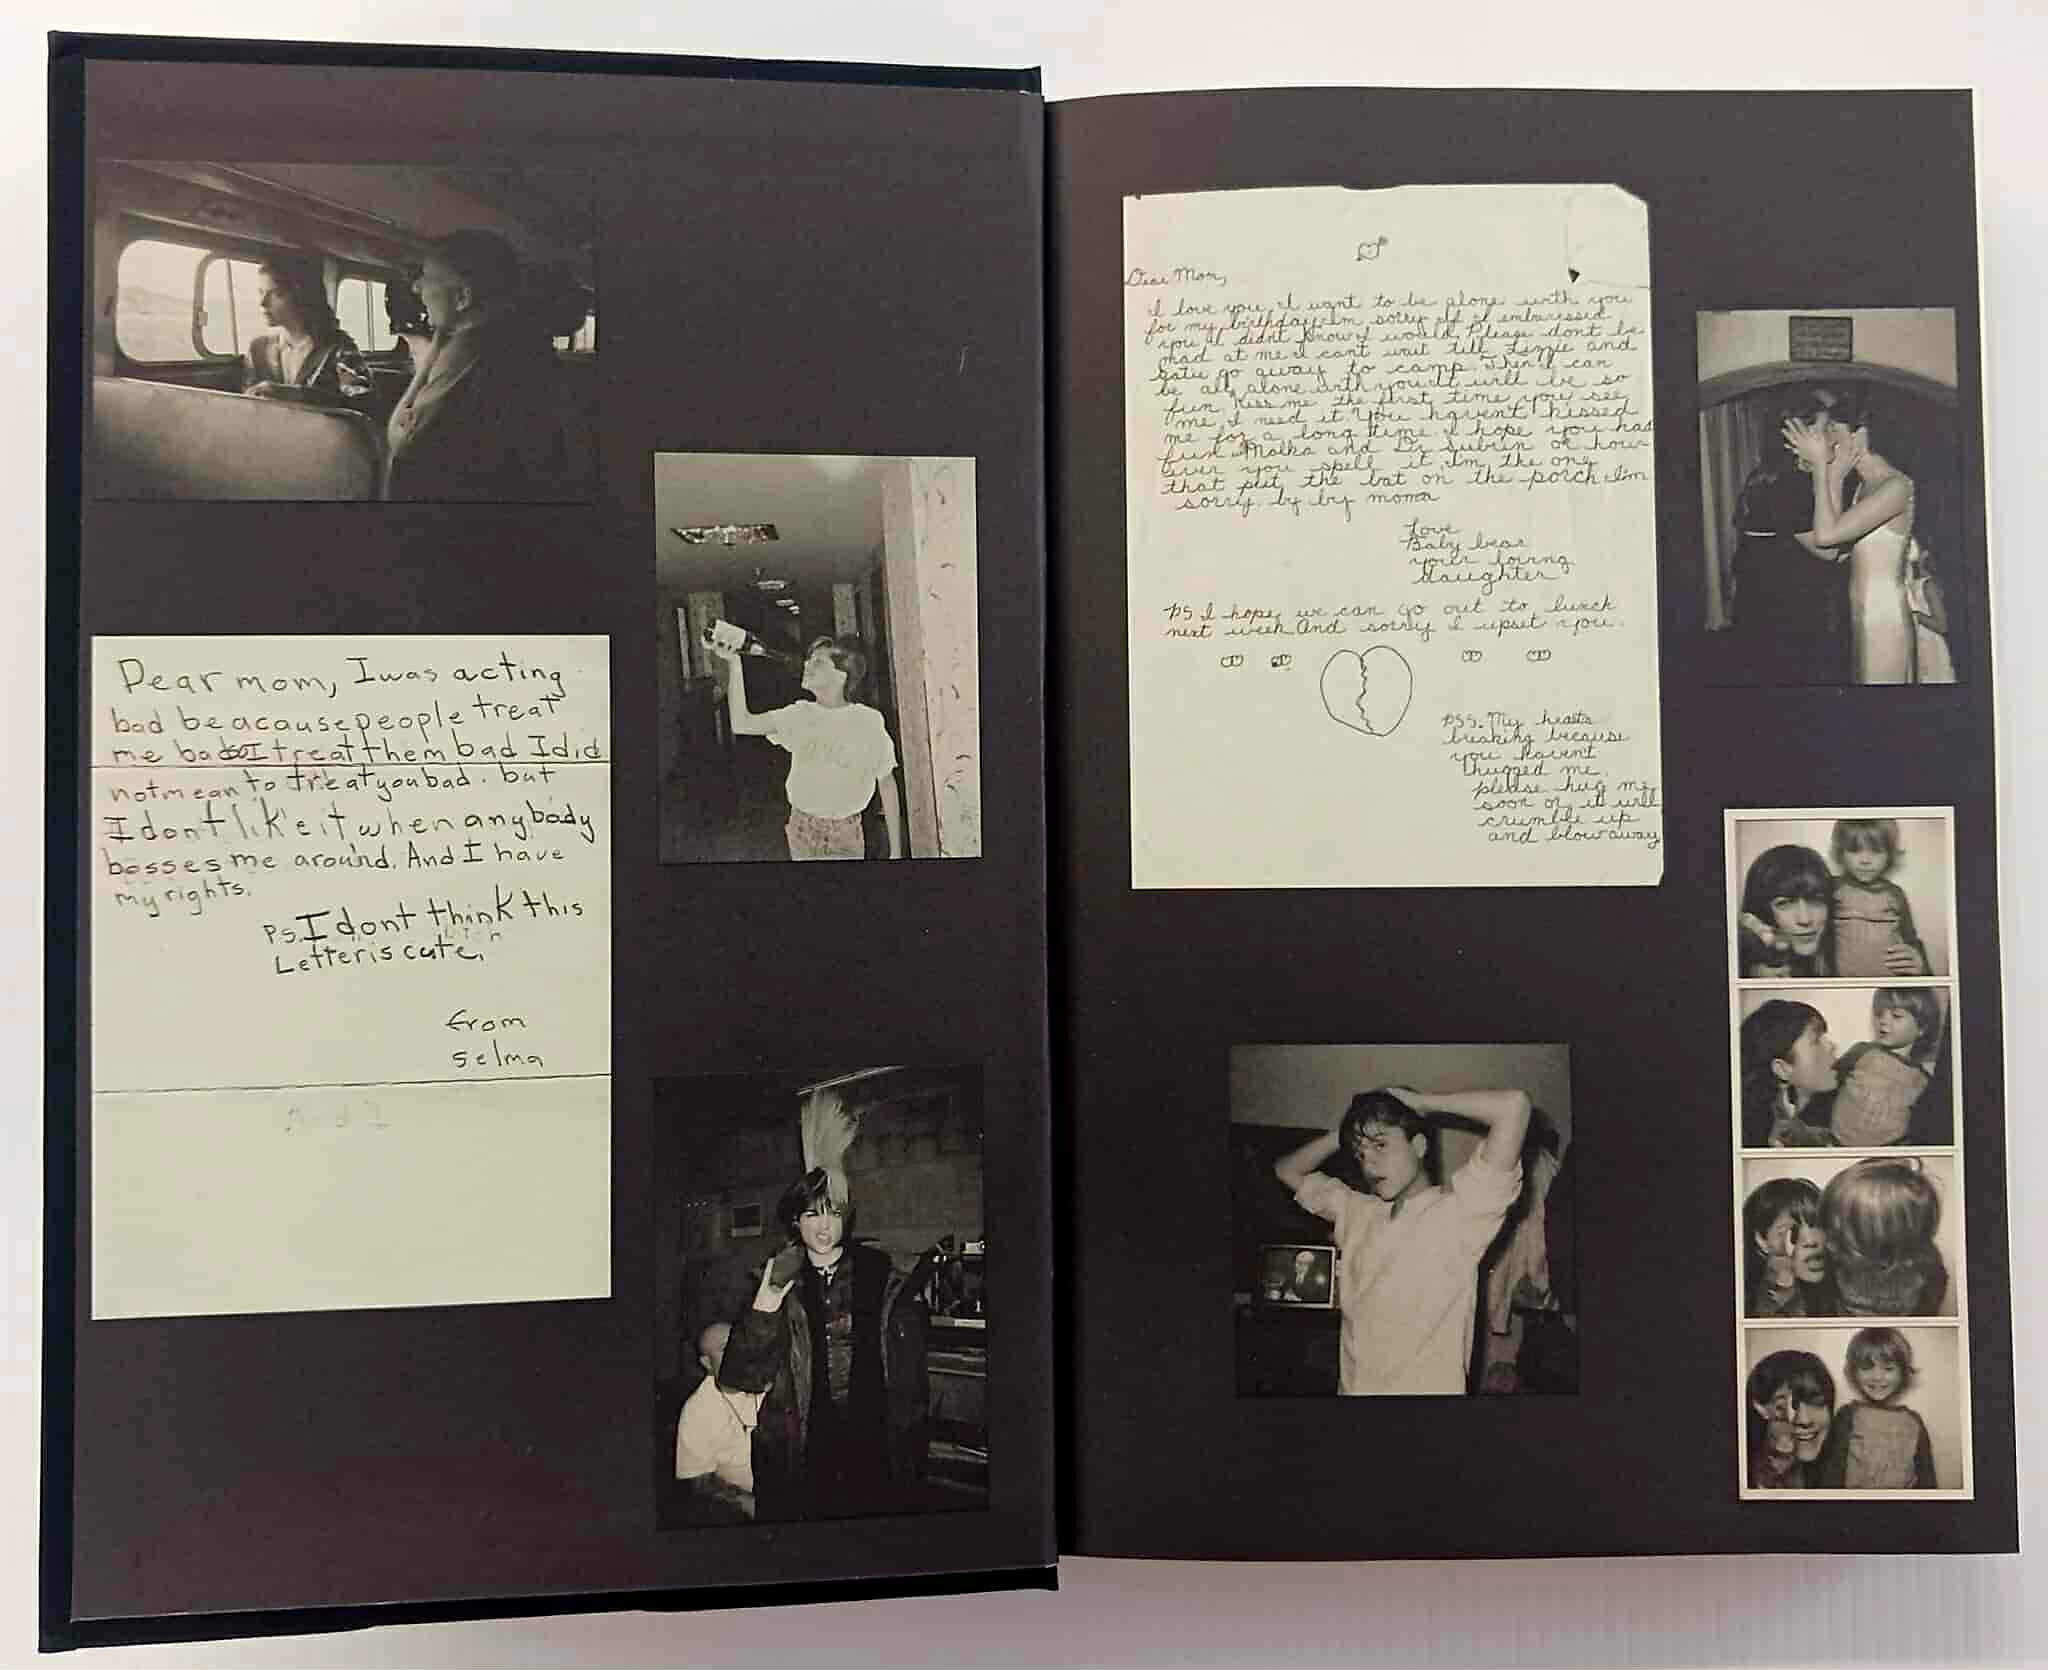 Dear mom, I was acting
bad beacause people treat
me bad so I treat them bad I did
not mean to treat you bad. but
I dont like it when anybody
bosses me around. And I have
my rights.
Ps. I dont think this
Letter is cute.
from
selma
And I
Dear Mom,
I love you, I want to be alone with you
for my birthday. Im sorry if I embaressed
you I didnt know I would. Please dont be
mad at me I cant wait till Lizzie and
Katie go away to camp. Then I can
be all alone with you it will be so
fun. Kiss me the first time you see
me, I need it. You havent kissed
me for a long time. I hope you had
fun Malka and Liz Subrin or how
ever you spell it. Im the one
that put the bat on the porch I'm
sorry. by by moma
Love
Baby bear
your loving
daughter
PS I hope we can go out to lunch
next week. And sorry I upset you.
PSS. My heats
breaking because
you havent
hugged me.
please hug me
soon or it will
crumble up
and blow away